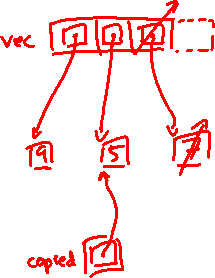 vec
9 5 7
copied